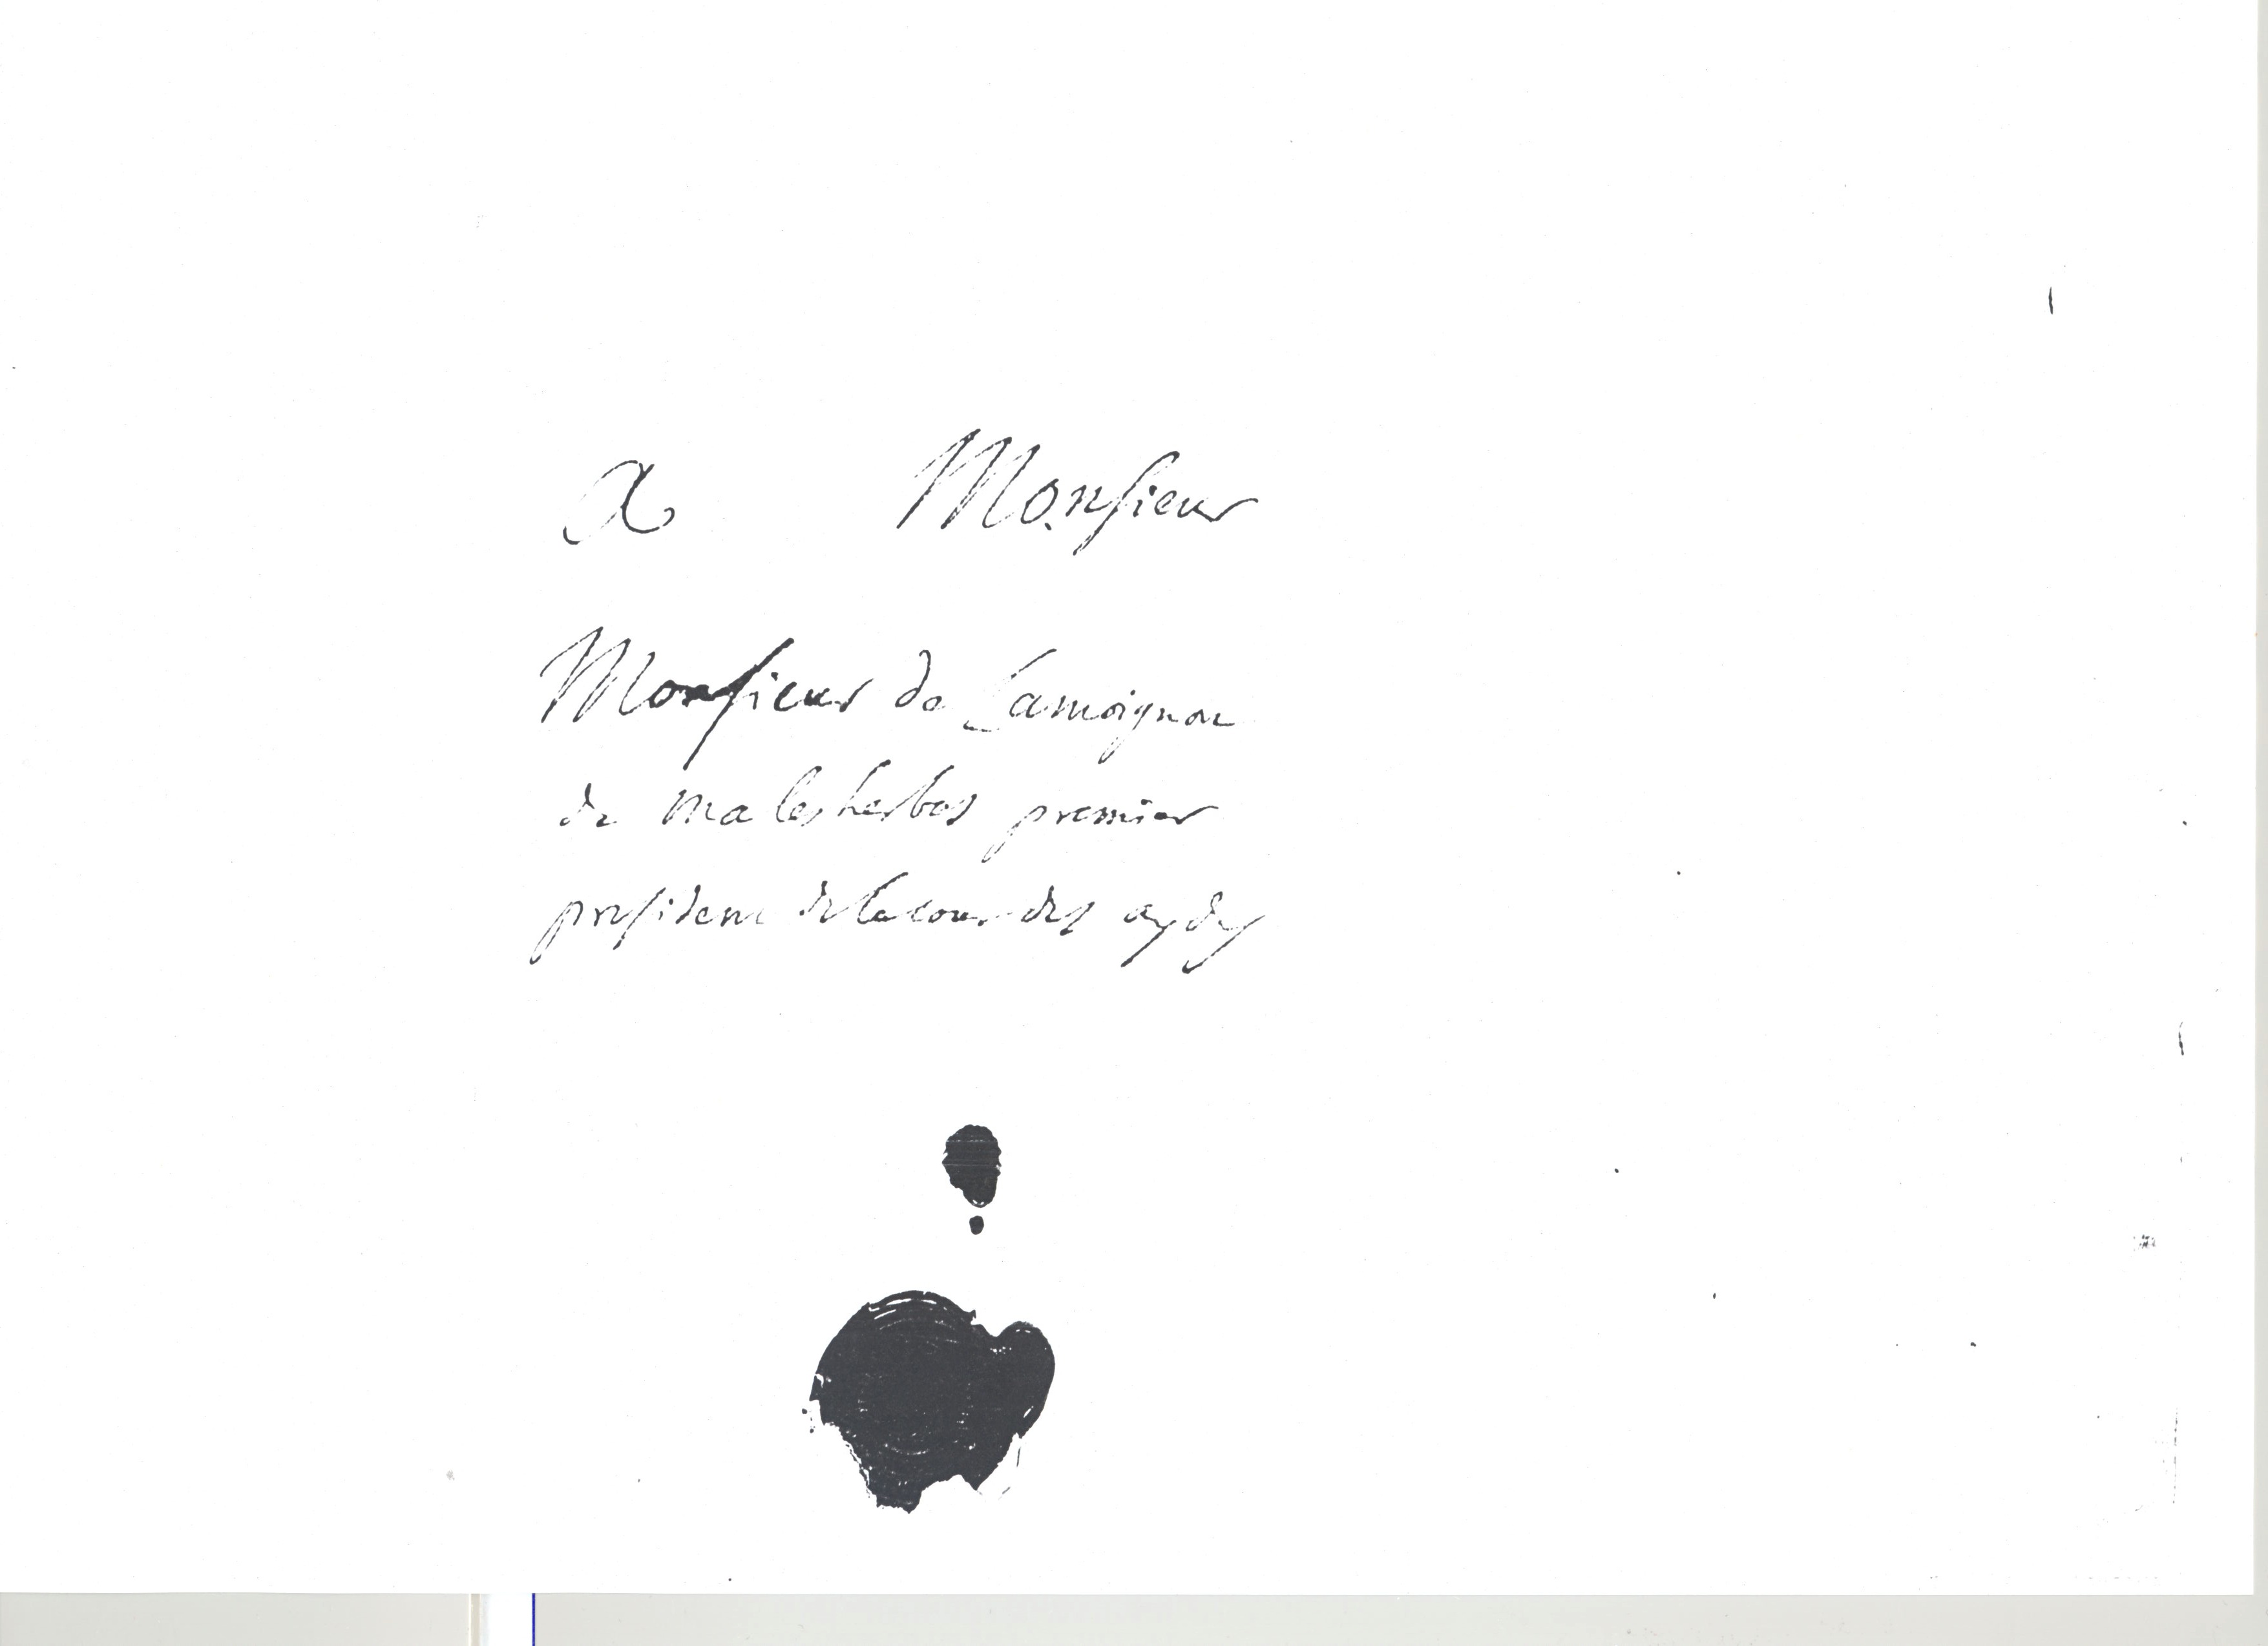 A Monsieur
Monsieur de Lamoignon
de malesherbes premier
president de la cour des aydes